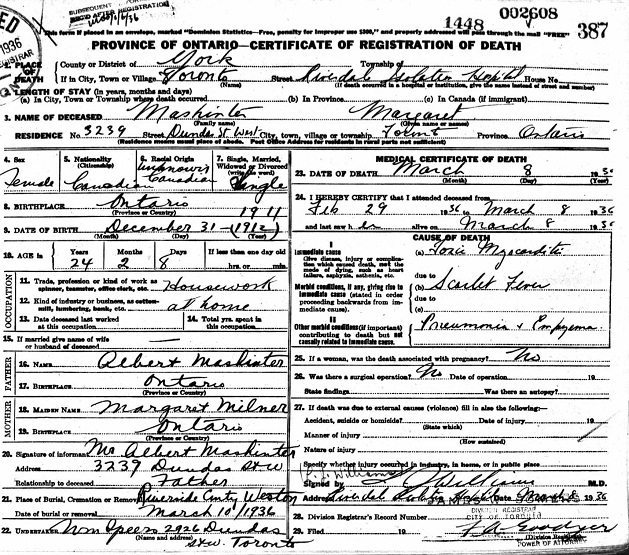 1936
SUBSEQUENT
REGISTRATION
002608
1448
387
This form if placed in an envelope, marked "Dominion Statistics—Free, penalty for improper use $300," and properly addressed will pass through the mail "FREE"
PROVINCE OF ONTARIO—CERTIFICATE OF REGISTRATION OF DEATH
1. PLACE OF DEATH
County or District of York Township of
If in City, Town or Village Toronto Street Riverdale Isolation Hospital House No.
(Name) (If death occurred in a hospital or institution, give the name instead of street and number)
2. LENGTH OF STAY (in years, months and days)
(a) In City, Town or Township where death occurred (b) In Province (c) In Canada (if immigrant)
3. NAME OF DECEASED Mashinter Margaret
(Family name) (Given name or names)
RESIDENCE No. 3239 Street Dundas St. West City, town, village or township Toronto Province Ontario
(Residence means usual place of abode. Post Office Address for residents in rural parts not sufficient)
4. Sex Female
5. Nationality (Citizenship) Canadian
6. Racial Origin unknown Canadian
7. Single, Married, Widowed or Divorced (write the word) Single
8. BIRTHPLACE Ontario
(Province or Country)
1911
9. DATE OF BIRTH December 31 — (1912)
(Month) (Day) (Year)
10. AGE in Years 24 Months 2 Days 8 If less than one day hrs. or min.
OCCUPATION
11. Trade, profession or kind of work as spinner, teamster, office clerk, etc. Housework
12. Kind of industry or business, as cotton-mill, lumbering, bank, etc. at home
13. Date deceased last worked at this occupation
14. Total yrs. spent in this occupation
15. If married give name of wife or husband of deceased —
FATHER
16. NAME Albert Mashinter
17. BIRTHPLACE Ontario
(Province or Country)
MOTHER
18. MAIDEN NAME Margaret Milner
19. BIRTHPLACE Ontario
(Province or Country)
20. Signature of informant Mr Albert Mashinter
Address 3239 Dundas St W
Relationship to deceased Father
21. Place of Burial, Cremation or Removal Riverside Cmty Weston
Date of burial or removal March 10/1936
22. UNDERTAKER Wm Speers 2926 Dundas
(Name and address)
St W. Toronto
MEDICAL CERTIFICATE OF DEATH
23. DATE OF DEATH March 8 1936
(Month) (Day) (Year)
24. I HEREBY CERTIFY that I attended deceased from
Feb 29 1936 to March 8 1936
and last saw her alive on March 8 1936
CAUSE OF DEATH
I
Immediate cause
Give disease, injury or complication which caused death, not the mode of dying, such as heart failure, asphyxia, asthenia, etc.
(a) Toxic Myocarditis
due to
Morbid conditions, if any, giving rise to immediate cause (stated in order proceeding backwards from immediate cause).
(b) Scarlet Fever
due to
(c)
II
Other morbid conditions (if important) contributing to death but not causally related to immediate cause.
Pneumonia & Empyema
25. If a woman, was the death associated with pregnancy? No
26. Was there a surgical operation? No Date of operation 19
State findings Was there an autopsy?
27. If death was due to external causes (violence) fill in also the following:—
Accident, suicide or homicide? Date of injury 19
(State which)
Manner of injury
(How sustained)
Nature of injury
Specify whether injury occurred in industry, in home, or in public place
Signed by Williams M.D.
Address Riverdale Isolation Date March 8 1936
28. Division Registrar's Record Number
DIVISION REGISTRAR
CITY OF TORONTO
29. Filed 19
(Division Registrar)
POWER OF ATTORNEY